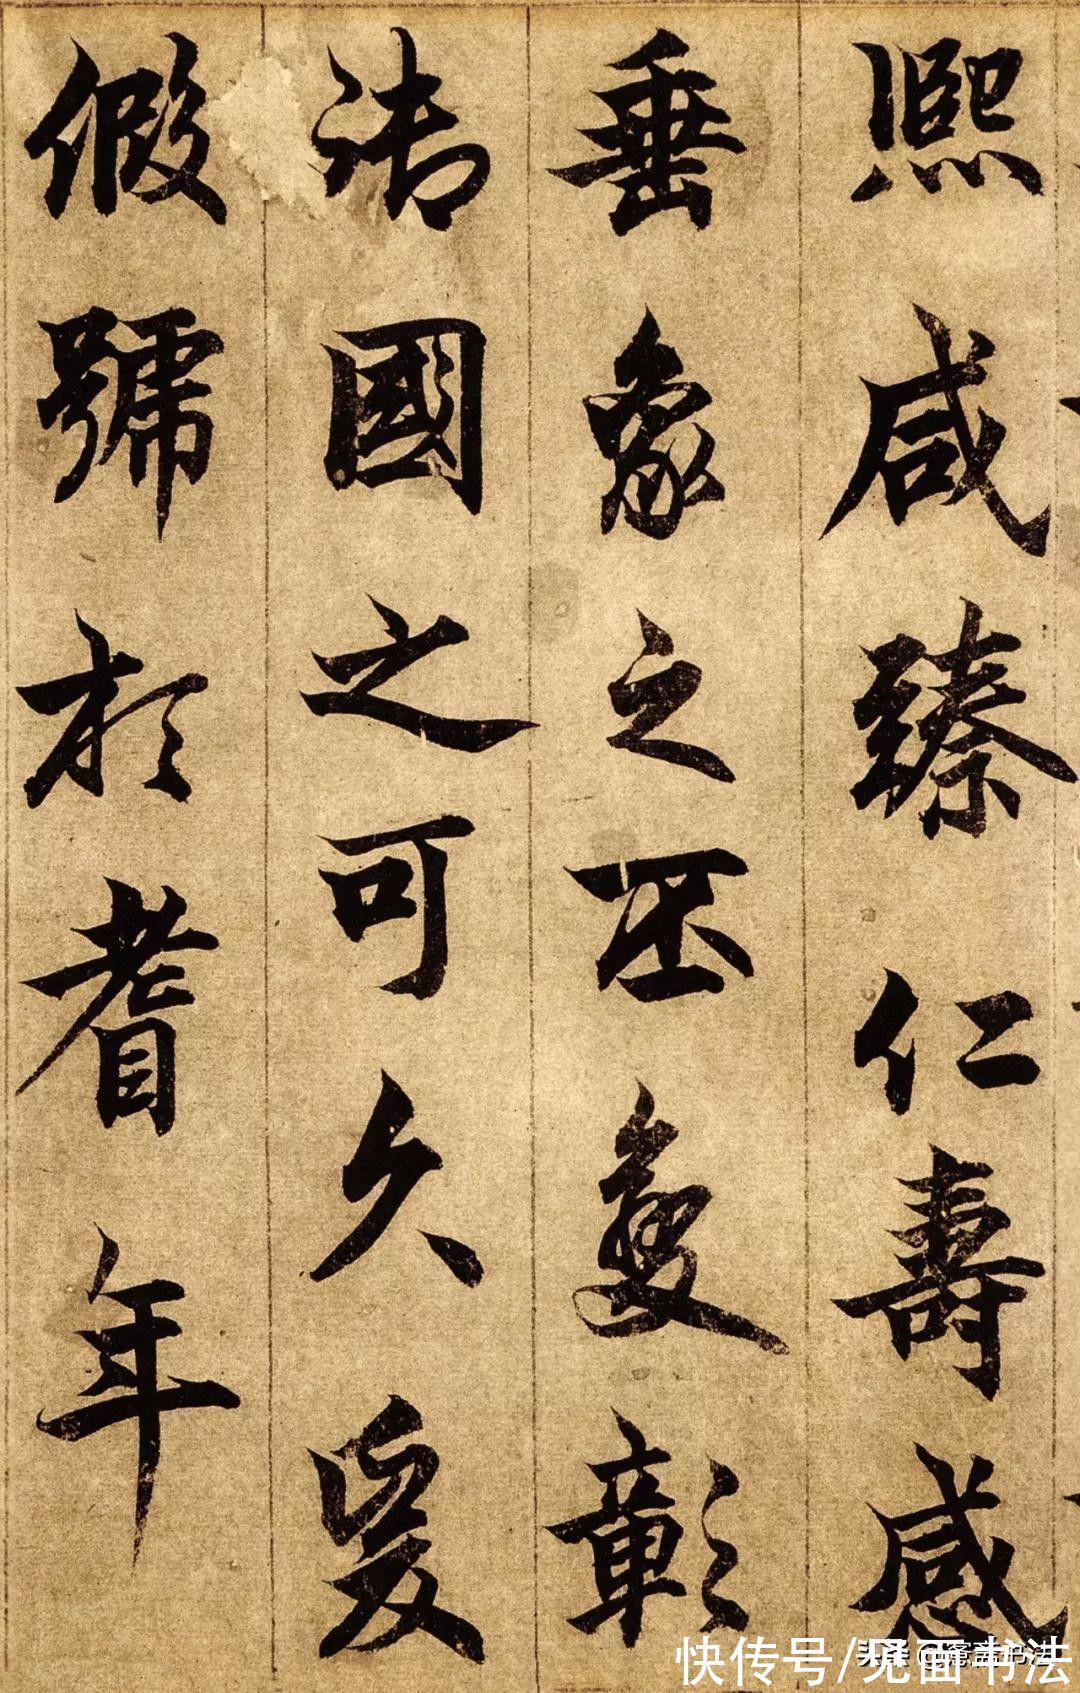 熙咸臻仁壽感
垂象之丕變彰
清國之可久爰
假號於耆年
快传号/见面书法